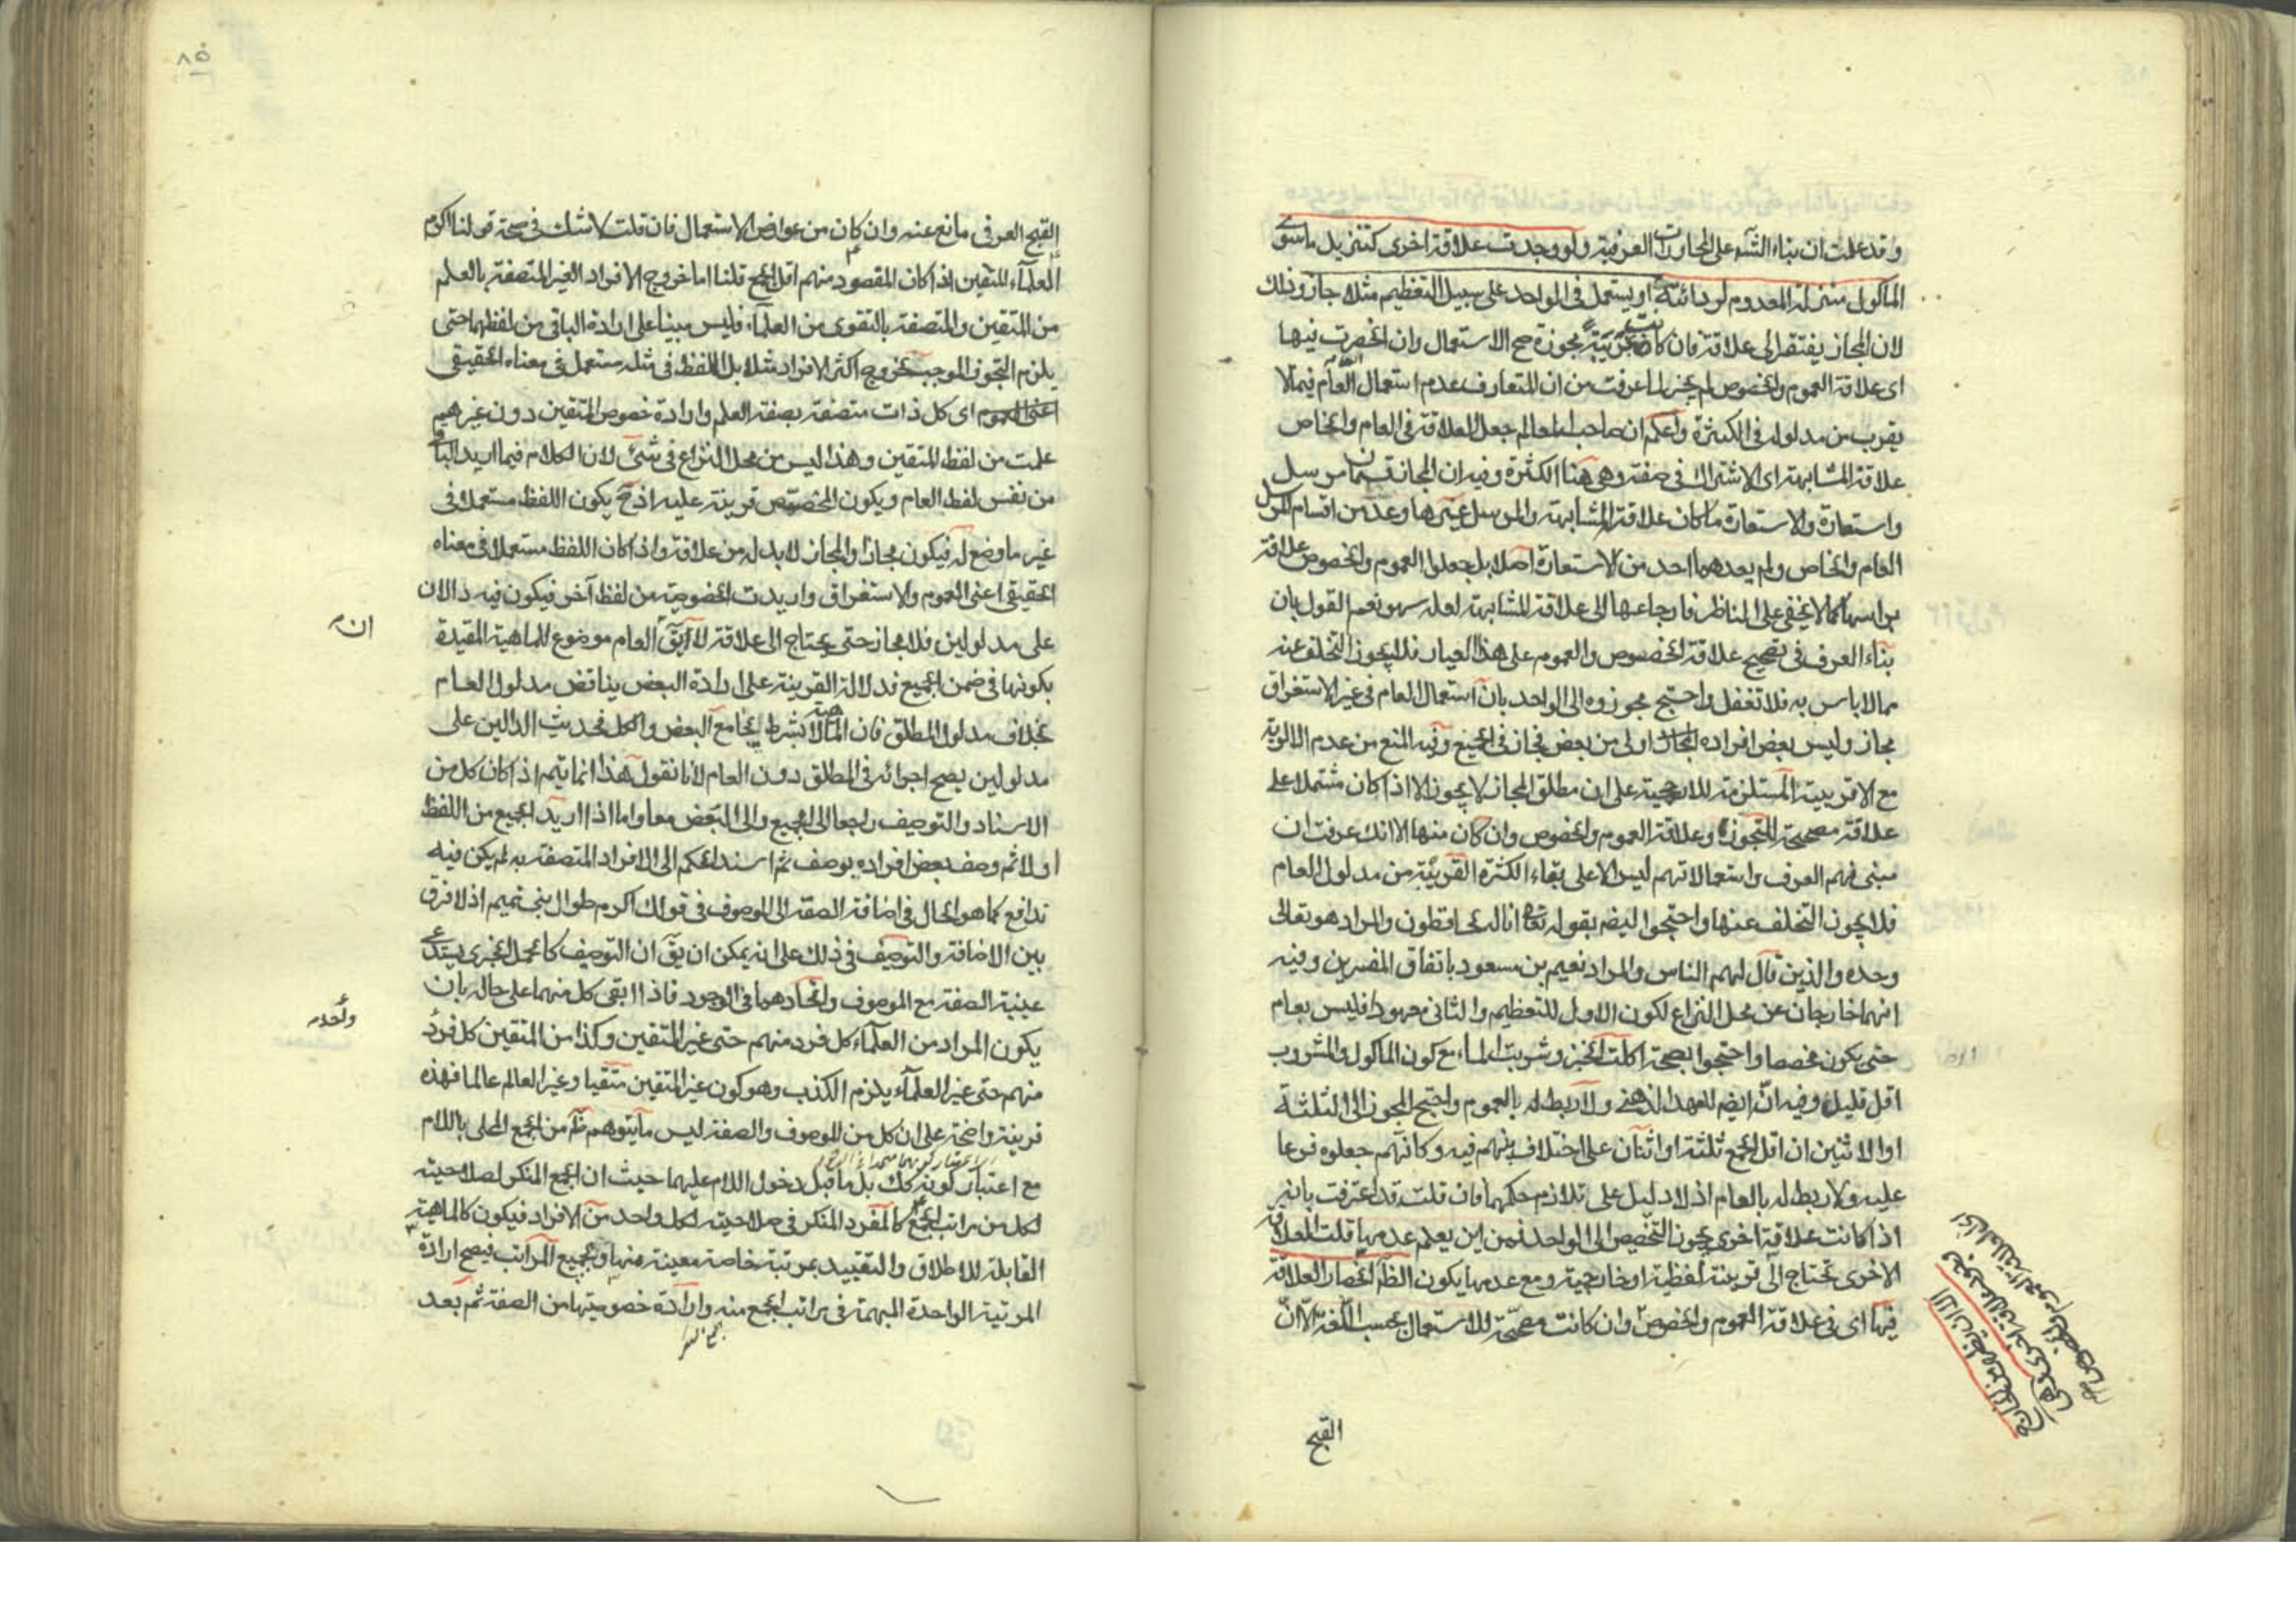 وقد علمت ان بناء الشئ على المحاورات العرفية ولو وجدت علاقة اخرى كتنزيل ما سوى
الماكول منزلة المعدوم لردائته او يستعمل فى الواحد على سبيل التعظيم مثلا جاز وذلك
لان المجاز يفتقر الى علاقة فان كانت مجوزة صح الاستعمال وان انحصرت فيها
اى علاقة العموم والخصوص لم يجز لما عرفت من ان المتعارف عدم استعمال العام فيما لا
يقرب من مدلوله فى الكثرة واعلم ان صاحب المعالم جعل العلاقة فى العام والخاص
علاقة المشابهة اى الاشتراك فى صفة وهى هنا الكثرة وفيه ان المجاز قسمان مرسل
واستعارة والاستعارة ما كان علاقة المشابهة والمرسل غيرها وعد من اقسام المرسل
العام والخاص ولم يعدهما احد من الاستعارة اصلا بل جعلوا العموم والخصوص علاقة
براسها كما لا يخفى على المناظر فارجاعها الى علاقة المشابهة لعله سهو نعم القول بان
بناء العرف فى تصحيح علاقة الخصوص والعموم على هذا العيار فلا يجوز التخلف عنه
مما لا باس به فلا تغفل واحتج مجوزوه الى الواحد بان استعمال العام فى غير الاستغراق
مجاز وليس بعض افراده اولى من بعض فجاز فى الجميع وفيه المنع من عدم الاولوية
مع الاقربية المستلزمة للارجحية على ان مطلق المجاز لا يجوز الا اذا كان مشتملا على
علاقة مصححة للتجوز وعلاقة العموم والخصوص وان كان منها الا انك عرفت ان
مبنى فهم العرف واستعمالاتهم ليس الا على بقاء الكثرة القريبة من مدلول العام
فلا يجوز التخلف عنها واحتجوا ايضا بقوله تعالى انا له لحافظون والمراد هو تعالى
وحده والذين قال لهم الناس والمراد نعيم بن مسعود باتفاق المفسرين وفيه
انهما خارجان عن محل النزاع لكون الاول للتعظيم والثانى معهود فليس بعام
حتى يكون مخصصا واحتجوا بصحة اكلت الخبز وشربت الماء مع كون الماكول والمشروب
اقل قليل وفيه ان ايضا للعهد الذهنى ولا ربط له بالعموم واحتج المجوز الى الثلثة
او الاثنين ان اقل الجمع ثلثة او اثنان على اختلاف بينهم فيه وكانهم جعلوه فرعا
عليه ولا ربط له بالعام اذ لا دليل على تلازم حكمهما فان قلت قد اعترفت بانه
اذا كانت علاقة اخرى يجوز التخصيص الى الواحد فمن اين يعلم عدمها قلت العلاقة
الاخرى تحتاج الى قرينة لفظية او خارجية ومع عدمها يكون الظاهر انحصار العلاقة
فيها اى فى علاقة العموم والخصوص وان كانت مصححة للاستعمال بحسب اللغة الا ان
القبح
القبح العرفى مانع عنه وان كان من عوارض الاستعمال فان قلت لا شك فى صحة قولنا اكرم
العلماء المتقين اذا كان المقصود منهم اقل الجمع قلنا اما خروج الافراد الغير المتصفة بالعلم
من المتقين والمتصفة بالتقوى من العلماء فليس مبنيا على ارادة الباقى من لفظهما حتى
يلزم التجوز الموجب لخروج اكثر الافراد مثلا بل اللفظ فى مثله مستعمل فى معناه الحقيقى
اعنى العموم اى كل ذات متصفة بصفة العلم وارادة خصوص المتقين دون غيرهم
علمت من لفظ المتقين وهذا ليس من محل النزاع فى شئ لان الكلام فيما اريد الباقى
من نفس لفظ العام ويكون المخصص قرينة عليه اذ ح يكون اللفظ مستعملا فى
غير ما وضع له فيكون مجازا والمجاز لا بد له من علاقة واذا كان اللفظ مستعملا فى معناه
الحقيقى اعنى العموم والاستغراق واريدت الخصوصية من لفظ آخر فيكون فيه دالان
على مدلولين فلا مجاز حتى يحتاج الى علاقة لا يق العام موضوع للماهية المقيدة
بكونها فى ضمن الجميع فدلالة القرينة على ارادة البعض يناقض مدلول العام
بخلاف مدلول المطلق فان لا بشرط يجامع البعض والكل فحديث الدالين على
مدلولين يصح اجرائه فى المطلق دون العام لانا نقول هذا انما يتم اذا كان كل من
الاسناد والتوصيف راجعا الى الجميع والى البعض معا واما اذا اريد الجميع من اللفظ
اولا ثم وصف بعض افراده بوصف ثم اسند الحكم الى الافراد المتصفة به لم يكن فيه
تدافع كما هو الحال فى اضافة الصفة الى الموصوف فى قولك اكرم طوال بنى تميم اذ لا فرق
بين الاضافة والتوصيف فى ذلك على انه يمكن ان يق ان التوصيف كالحمل الخبرى يستدعى
عينية الصفة مع الموصوف واتحادهما فى الوجود فاذا ابقى كل منهما على حاله بان
يكون المراد من العلماء كل فرد منهم حتى غير المتقين وكذا من المتقين كل فرد
منهم حتى غير العلماء يلزم الكذب وهو كون غير المتقين متقيا وغير العالم عالما فهذه
قرينة واضحة على ان كل من الموصوف والصفة ليس ما يتوهم من الجمع المحلى باللام
مع اعتبار كونه كك بل ما قبل دخول اللام عليهما حيث ان الجمع المنكر لصلاحيته
لكل من مراتب الجمع كالمفرد المنكر فى صلاحيته لكل واحد من الافراد فيكون كالماهية
القابلة للاطلاق والتقييد بمرتبة خاصة معينة منها وبجميع المراتب فيصح ارادة
المرتبة الواحدة المبهمة فى مراتب الجمع منه وارادة خصوصيتها من الصفة ثم بعد